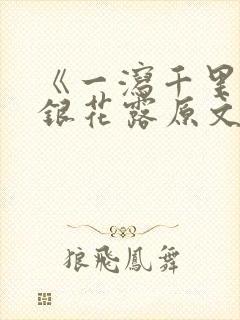 《一瀉千里
銀花露原文
狼飛鳳舞